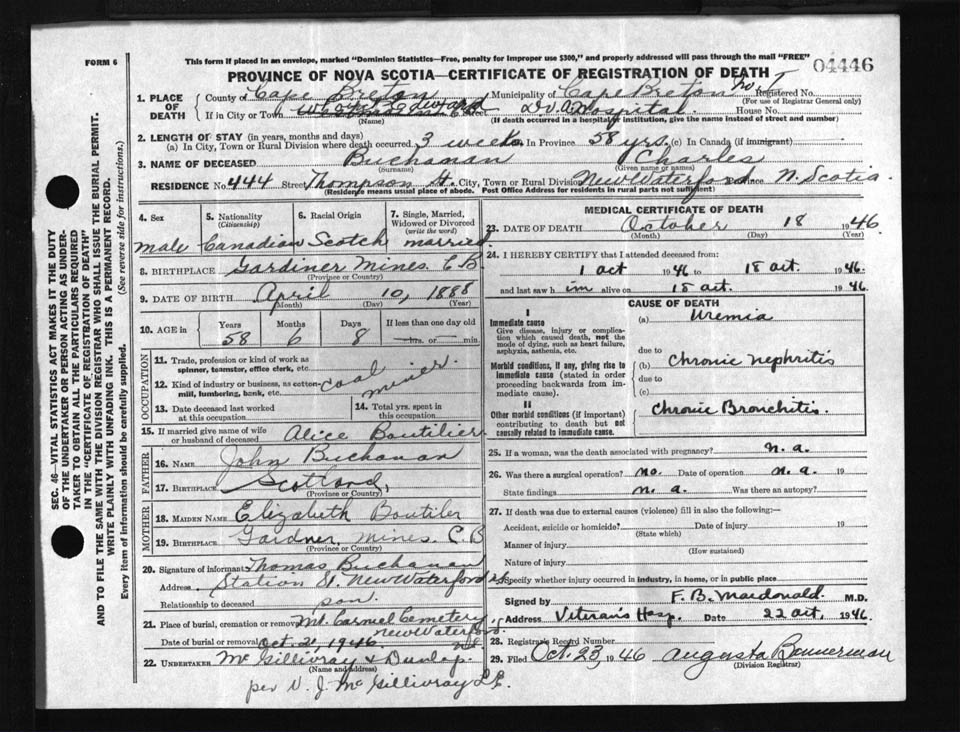 FORM 6
This form if placed in an envelope, marked "Dominion Statistics—Free, penalty for improper use $300," and properly addressed will pass through the mail "FREE"
04446
PROVINCE OF NOVA SCOTIA—CERTIFICATE OF REGISTRATION OF DEATH
1. PLACE OF DEATH
County of Cape Breton Municipality of Cape Breton Registered No.
(For use of Registrar General only)
If in City or Town Street D.V.A. Hospital House No.
(Name) (If death occurred in a hospital or institution, give the name instead of street and number)
2. LENGTH OF STAY (in years, months and days)
(a) In City, Town or Rural Division where death occurred 3 weeks In Province 58 yrs. (c) In Canada (if immigrant)
3. NAME OF DECEASED Buchanan Charles
(Surname) (Given name or names)
RESIDENCE No. 444 Street Thompson St. City, Town or Rural Division New Waterford Province N. Scotia
(Residence means usual place of abode. Post Office Address for residents in rural parts not sufficient)
4. Sex
5. Nationality (Citizenship)
6. Racial Origin
7. Single, Married, Widowed or Divorced (write the word)
male Canadian Scotch married
8. BIRTHPLACE Gardiner Mines. C.B.
(Province or Country)
9. DATE OF BIRTH April 10, 1888
(Month) (Day) (Year)
10. AGE in Years Months Days If less than one day old
58 6 8 hrs. or min.
OCCUPATION
11. Trade, profession or kind of work as spinner, teamster, office clerk, etc.
12. Kind of industry or business, as cotton-mill, lumbering, bank, etc. coal miner.
13. Date deceased last worked at this occupation
14. Total yrs. spent in this occupation
15. If married give name of wife or husband of deceased Alice Boutilier
FATHER
16. NAME John Buchanan
17. BIRTHPLACE Scotland,
(Province or Country)
MOTHER
18. MAIDEN NAME Elizabeth Boutiler
19. BIRTHPLACE Gardner Mines. C.B
(Province or Country)
20. Signature of informant Thomas Buchanan
Address Station St. New Waterford N.S.
Relationship to deceased son.
21. Place of burial, cremation or removal Mt. Carmel Cemetery,
New Waterford.
Date of burial or removal Oct. 21, 1946 N.S.
22. UNDERTAKER McGillivray & Dunlap.
(Name and address)
per V. J. McGillivray L.E.
MEDICAL CERTIFICATE OF DEATH
23. DATE OF DEATH October 18 1946
(Month) (Day) (Year)
24. I HEREBY CERTIFY that I attended deceased from:
1 oct 1946 to 18 oct. 1946.
and last saw him alive on 18 oct. 1946
CAUSE OF DEATH
I
Immediate cause
Give disease, injury or complication which caused death, not the mode of dying, such as heart failure, asphyxia, asthenia, etc.
(a) Uremia
due to
Morbid conditions, if any, giving rise to immediate cause (stated in order proceeding backwards from immediate cause).
(b) Chronic Nephritis
due to
(c)
II
Other morbid conditions (if important) contributing to death but not causally related to immediate cause.
Chronic Bronchitis.
25. If a woman, was the death associated with pregnancy? n.a.
26. Was there a surgical operation? no. Date of operation n.a. 19
State findings n.a. Was there an autopsy?
27. If death was due to external causes (violence) fill in also the following:—
Accident, suicide or homicide? Date of injury 19
(State which)
Manner of injury
(How sustained)
Nature of injury
Specify whether injury occurred in industry, in home, or in public place
Signed by F. B. Macdonald M.D.
Address Veteran's Hosp. Date 22 oct, 1946.
28. Registrar's Record Number
29. Filed Oct. 23, 1946 Augusta Bannerman
(Division Registrar)
SEC. 46—VITAL STATISTICS ACT MAKES IT THE DUTY
OF THE UNDERTAKER OR PERSON ACTING AS UNDER-
TAKER TO OBTAIN ALL THE PARTICULARS REQUIRED
IN THE "CERTIFICATE OF REGISTRATION OF DEATH"
AND TO FILE THE SAME WITH THE DIVISION REGISTRAR WHO SHALL ISSUE THE BURIAL PERMIT.
WRITE PLAINLY WITH UNFADING INK. THIS IS A PERMANENT RECORD.
Every item of information should be carefully supplied. (See reverse side for instructions.)